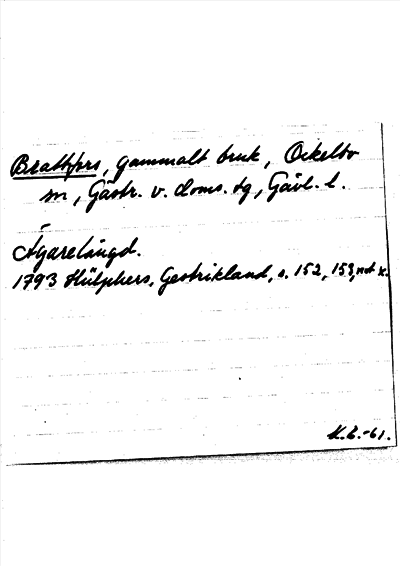 Brattfors, gammalt bruk, Ockelbo
sn, Gästr. v. doms. tg, Gävl. l.
Ägarelängd.
1793 Hülphers, Gestrikland, s. 152, 153, not x.
K.L.-61.